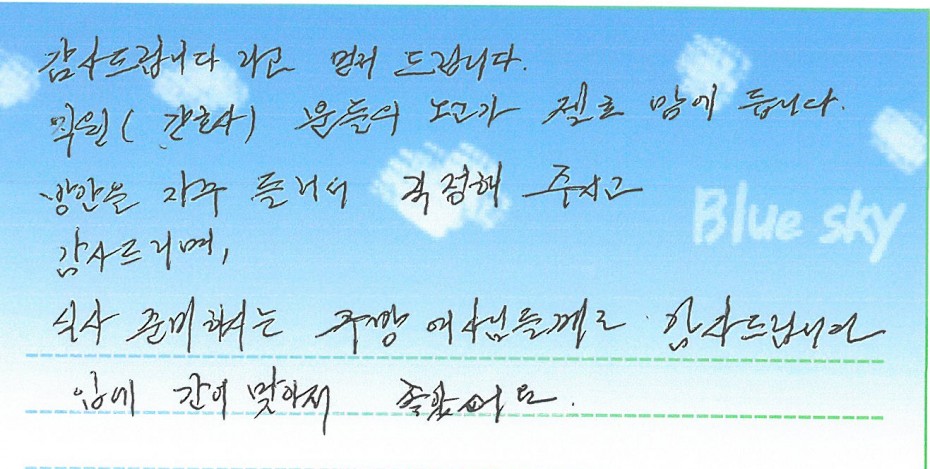 감사드립니다 라고 먼저 드립니다.
직원( 간호사) 분들의 노고가 젤로 맘에 듭니다.
방안을 자주 들러서 걱정해 주시고
감사드리며,
Blue sky
식사 준비하시는 주방 여사님들께도 감사드립니다
입에 간이 맞아서 좋았어요.